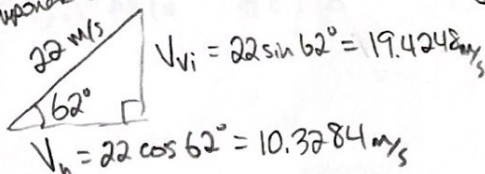 22 m/s
V_vi = 22 sin 62° = 19.4248 m/s
62°
V_h = 22 cos 62° = 10.3284 m/s